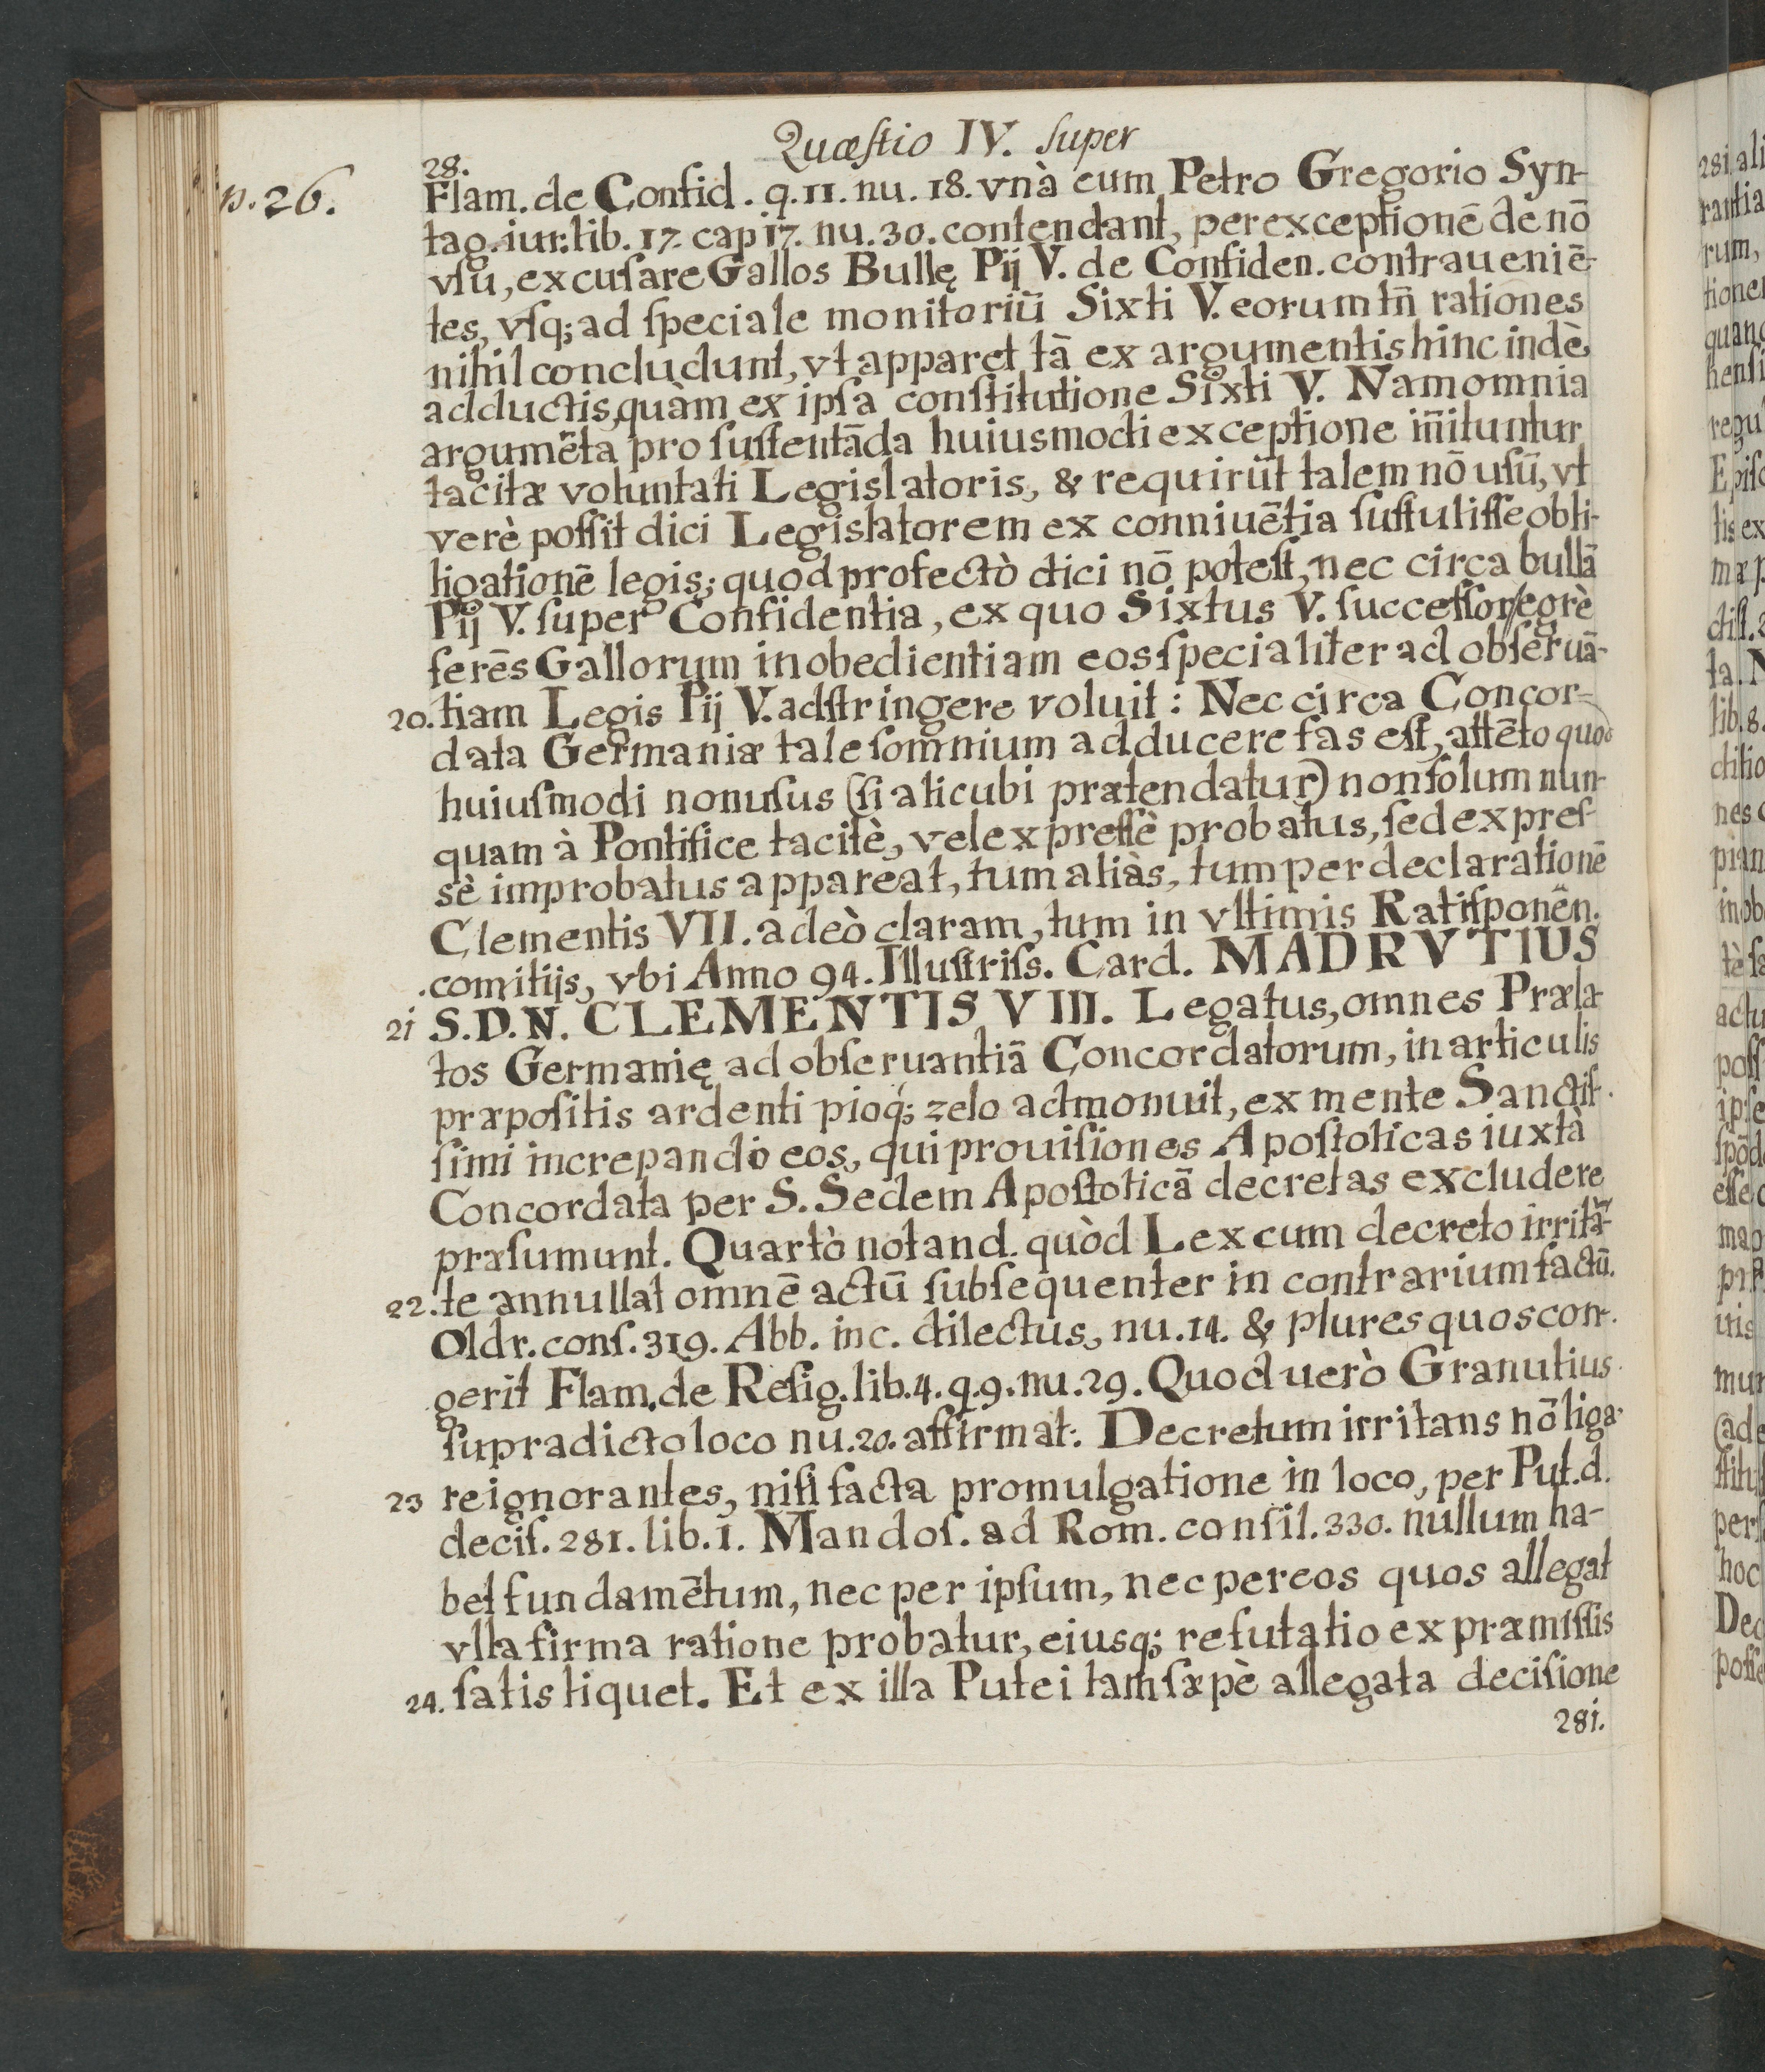 Quæſtio IV. ſuper
28.
p. 26.
Flam. de Confid. q. 11. nu. 18. vnà cum Petro Gregorio Syn-
tag. iur. lib. 17. cap 17. nu. 30. contendant, per exceptionē de nō
vſu, excuſare Gallos Bullę Pij V. de Confiden. contraueniē-
tes, vſq; ad ſpeciale monitoriū Sixti V. eorum tn̄ rationes
nihil concludunt, vt apparet tā ex argumentis hinc indè
adductis, quàm ex ipſa conſtitutione Sixti V. Nam omnia
argumēta pro ſuſtentāda huiusmodi exceptione iñituntur
tacitæ voluntati Legislatoris, & requirūt talem nō uſū, vt
verè poſſit dici Legislatorem ex conniuētia ſuſtuliſſe obli-
ligationē legis; quod profectò dici nō poteſt, nec circa bullā
Pij V. ſuper Confidentia, ex quo Sixtus V. ſucceſſor/egrè
ferēs Gallorum inobedientiam eos ſpecialiter ad obſeruā-
20. tiam Legis Pij V. adſtringere voluit: Nec circa Concor-
data Germaniæ tale ſomnium adducere fas eſt, attēto quod
huiuſmodi nonuſus (ſi alicubi prætendatur) non ſolum nun-
quam à Pontifice tacitè, vel expreſſè probatus, ſed expreſ-
sè improbatus appareat, tum aliàs, tum per declarationē
Clementis VII. adeò claram, tum in vltimis Ratiſponēn.
comitijs, vbi Anno 94. Illuſtriſs. Card. MADRVTIUS
21 S.D.N. CLEMENTIS VIII. Legatus, omnes Præla-
tos Germanię ad obſeruantiā Concordatorum, in articulis
præpoſitis ardenti pioq́; zelo admonuit, ex mente Sanctiſ-
ſimi increpando eos, qui prouiſiones Apoſtolicas iuxtà
Concordata per S. Sedem Apoſtolicā decretas excludere
præſumunt. Quartò notand. quòd Lex cum decreto irritā-
22. te annullat omnē actū ſubſequenter in contrarium factū.
Oldr. conſ. 319. Abb. in c. dilectus, nu. 14. & plures quos con-
gerit Flam. de Reſig. lib. 4. q. 9. nu. 29. Quod uerò Granutius
ſupradicto loco nu. 20. affirmat: Decretum irritans nō liga-
23 re ignorantes, niſi facta promulgatione in loco, per Put. d.
deciſ. 281. lib. 1. Mandoſ. ad Rom. conſil. 330. nullum ha-
bet fundamētum, nec per ipſum, nec per eos quos allegat
vlla firma ratione probatur, eiusq; refutatio ex præmiſſis
24. ſatis liquet. Et ex illa Putei tam ſæpè allegata deciſione
281.